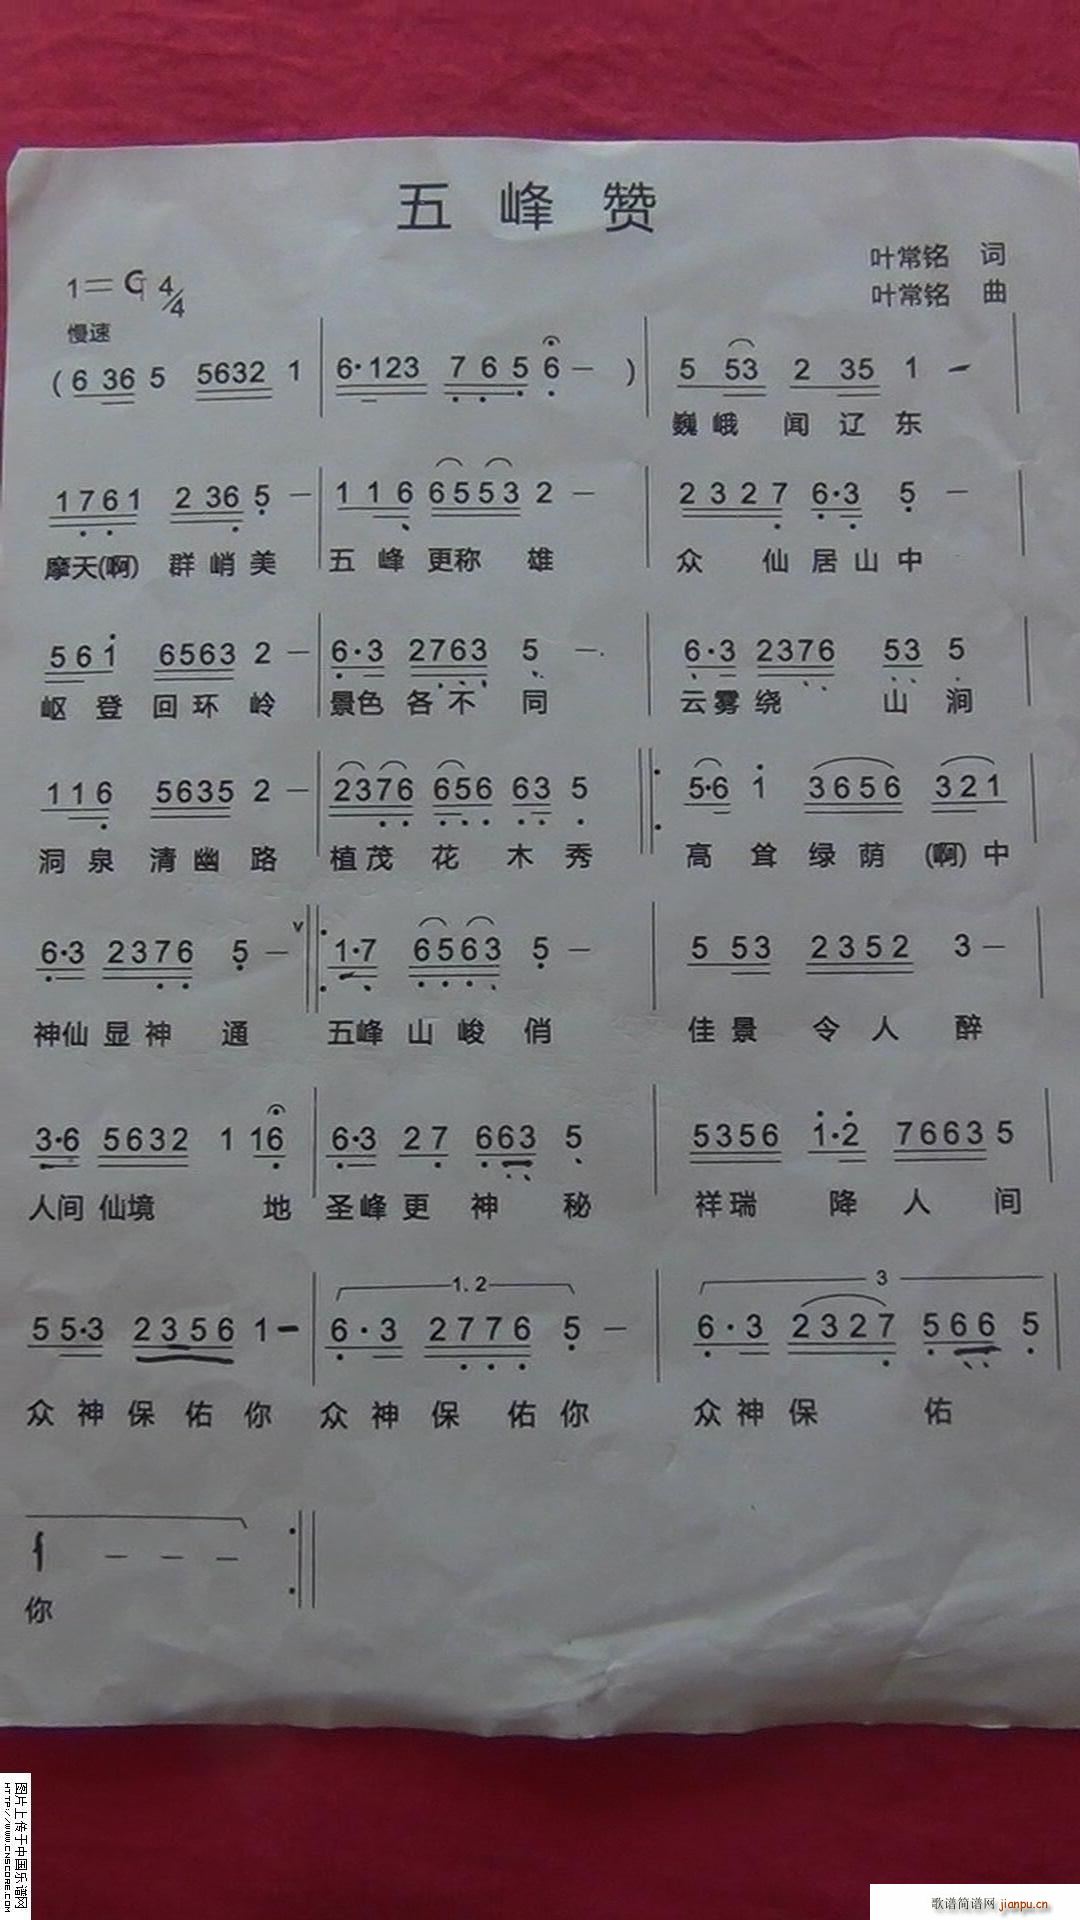 五 峰 赞
叶常铭 词
1=G 4/4
叶常铭 曲
慢速
(6 36 5 5632 1 | 6·123 7 6 5 6 — ) | 5 53 2 35 1 — |
巍 峨 闻 辽 东
1761 2 36 5 — | 1 1 6 6553 2 — | 2327 6·3 5 — |
摩天(啊) 群 峭 美 五 峰 更称 雄 众 仙 居 山 中
561 6563 2 — | 6·3 2763 5 — · | 6·3 2376 53 5 |
岖 登 回 环 岭 景色 各 不 同 云雾绕 山 涧
116 5635 2 — | 2376 656 63 5 ‖: 5·6 1 3656 321 |
洞 泉 清 幽 路 植 茂 花 木 秀 高 耸 绿 荫 (啊) 中
6·3 2376 5 — v ‖: 1·7 6563 5 — | 5 53 2352 3 — |
神仙 显 神 通 五峰 山 峻 俏 佳 景 令 人 醉
3·6 5632 1 16 | 6·3 27 663 5 | 5356 1·2 7663 5 |
人间 仙境 地 圣峰 更 神 秘 祥瑞 降 人 间
1. 2 3
5 5·3 2356 1 — | 6·3 2776 5 — | 6·3 2327 566 5 |
众 神 保 佑 你 众 神 保 佑 你 众 神 保 佑
1 — — — :‖
你
图片上传于中国乐谱网
HTTP://WWW.CNSCORE.COM
歌谱简谱网 jianpu.cn